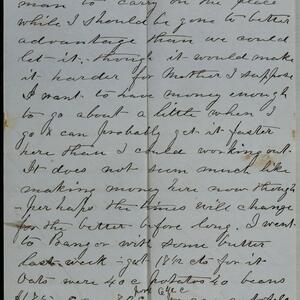 man to carry on the place
while I should be gone to better
advantage than we could
let it. though it would make
it harder for Mother I suppose
I want to have money enough
to go about a little when I
go & can probably get it faster
here than I could working out.
It does not seem much like
making money here now though
perhaps the times will change
for the better before long, I went
to Bangor with some butter
last week - got 18½ cts for it
Oats were 40c potatos 40 beans